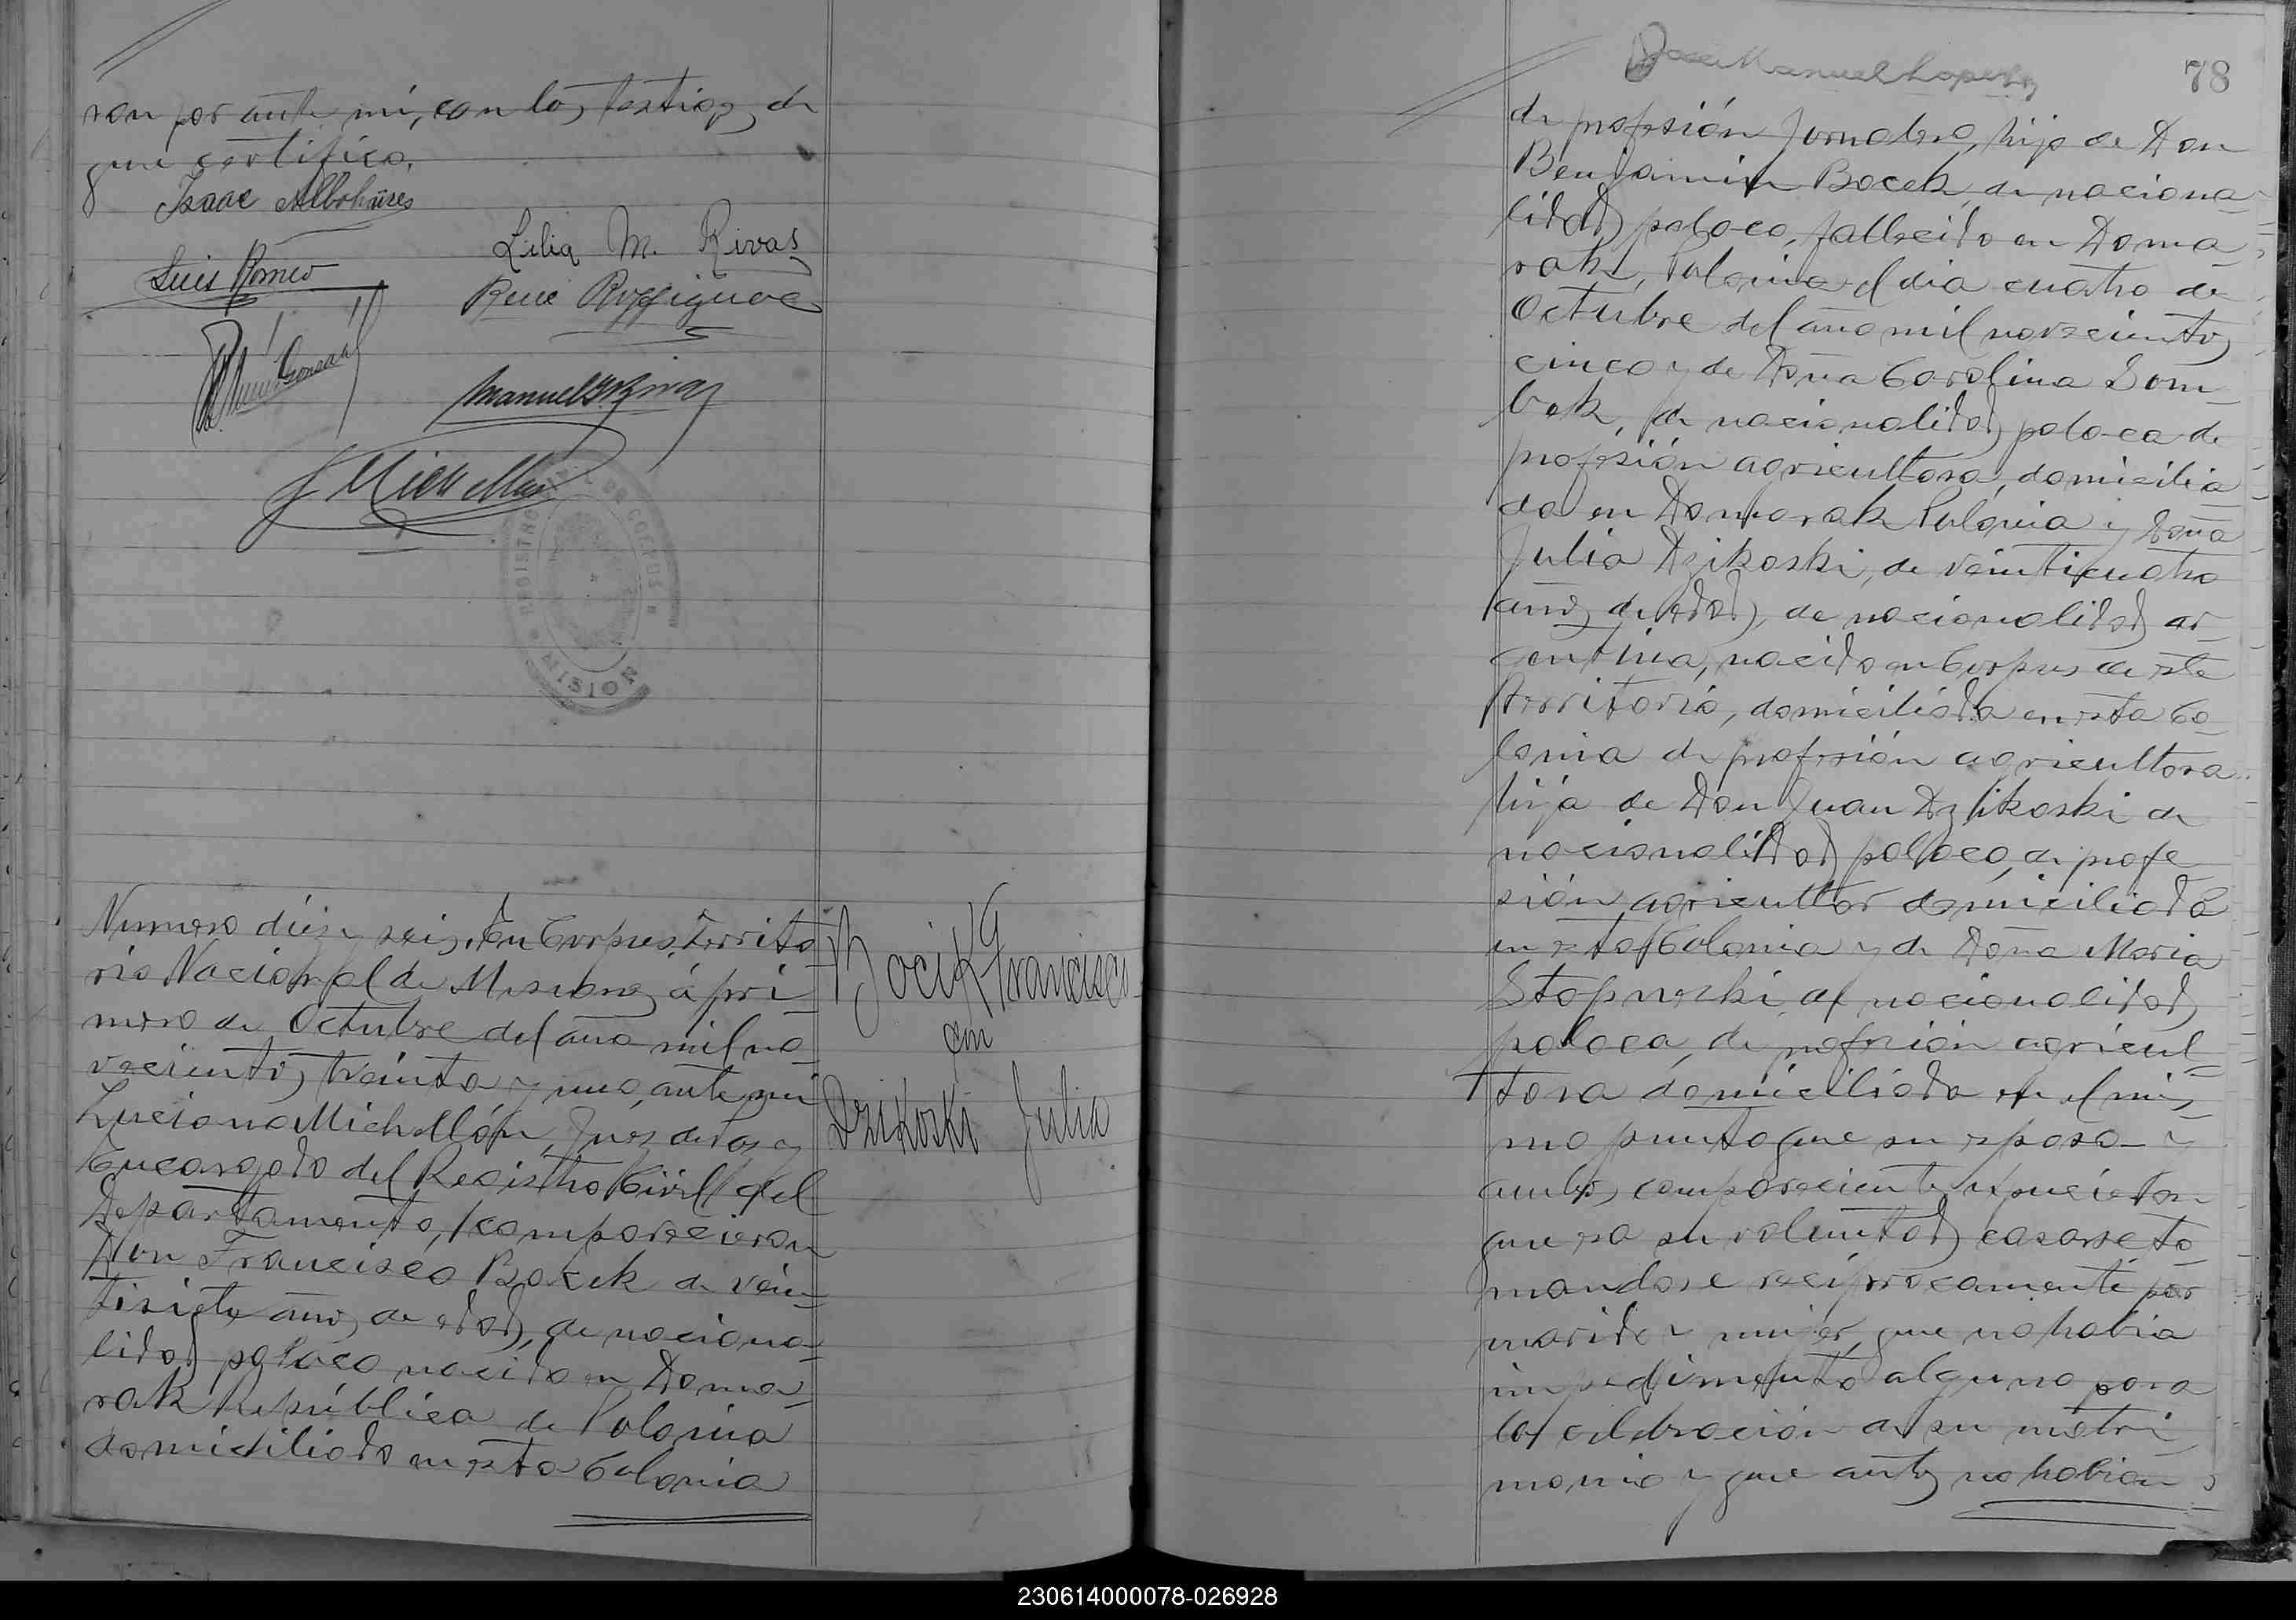 ron por ante mí, con los testigos de
que certifico.
Isaac Albohaires
Lilia M. Rivas
Luis Romeo
René Rossignol
Manuel Rivas
L Michellón
REGISTRO CIVIL DE CORPUS
MISIONES
Numero diez y seis, En Corpus, Territo
rio Nacional de Misiones, á pri-
mero de Octubre del año mil no-
vecientos treinta y uno, ante mí
Luciano Michellón, Juez de Paz y
Encargado del Registro Civil del
Departamento, comparecieron
Don Francisco Bocek de vein-
tisiete años de edad, de naciona-
lidad polaco nacido en Doma-
rak República de Polonia
domiciliado en esta Colonia
Bocik Francisco
con
Dzikoski Julia
78
Jose Manuel Lopez
de profesión Jornalero, hijo de Don
Benjamin Bocek, de naciona-
lidad polaco, fallecido en Doma-
rak, Polonia el dia cuatro de
Octubre del año mil novecientos
cinco y de Doña Carolina Dom-
bek, de nacionalidad polaca de
profesión agricultora, domicilia-
da en Domarak Polonia y Doña
Julia Dzikoski, de veinticuatro
años de edad, de nacionalidad ar-
gentina, nacida en Corpus de este
Territorio, domiciliada en esta Co-
lonia de profesión agricultora
hija de Don Juan Dzikoski de
nacionalidad polaco, de profe
sión agricultor domiciliado
en esta Colonia y de Doña Maria
Stopneski, de nacionalidad
polaca, de profesión agricul-
tora domiciliada en el mis-
mo punto que su esposo y
ambos comparecientes expusieron
que era su voluntad casarse to-
mandose reciprocamente por
marido y mujer, que no habia
impedimento alguno para
la celebración de su matri-
monio y que antes no habian
230614000078-026928